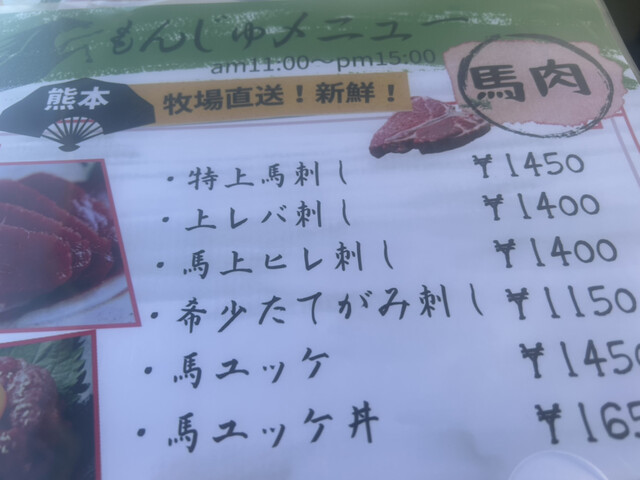 もんじゅメニュー
am11:00～pm15:00
熊本
牧場直送！新鮮！
馬肉
・特上馬刺し ¥1450
・上レバ刺し ¥1400
・馬上ヒレ刺し ¥1400
・希少たてがみ刺し ¥1150
・馬ユッケ ¥1450
・馬ユッケ丼 ¥165